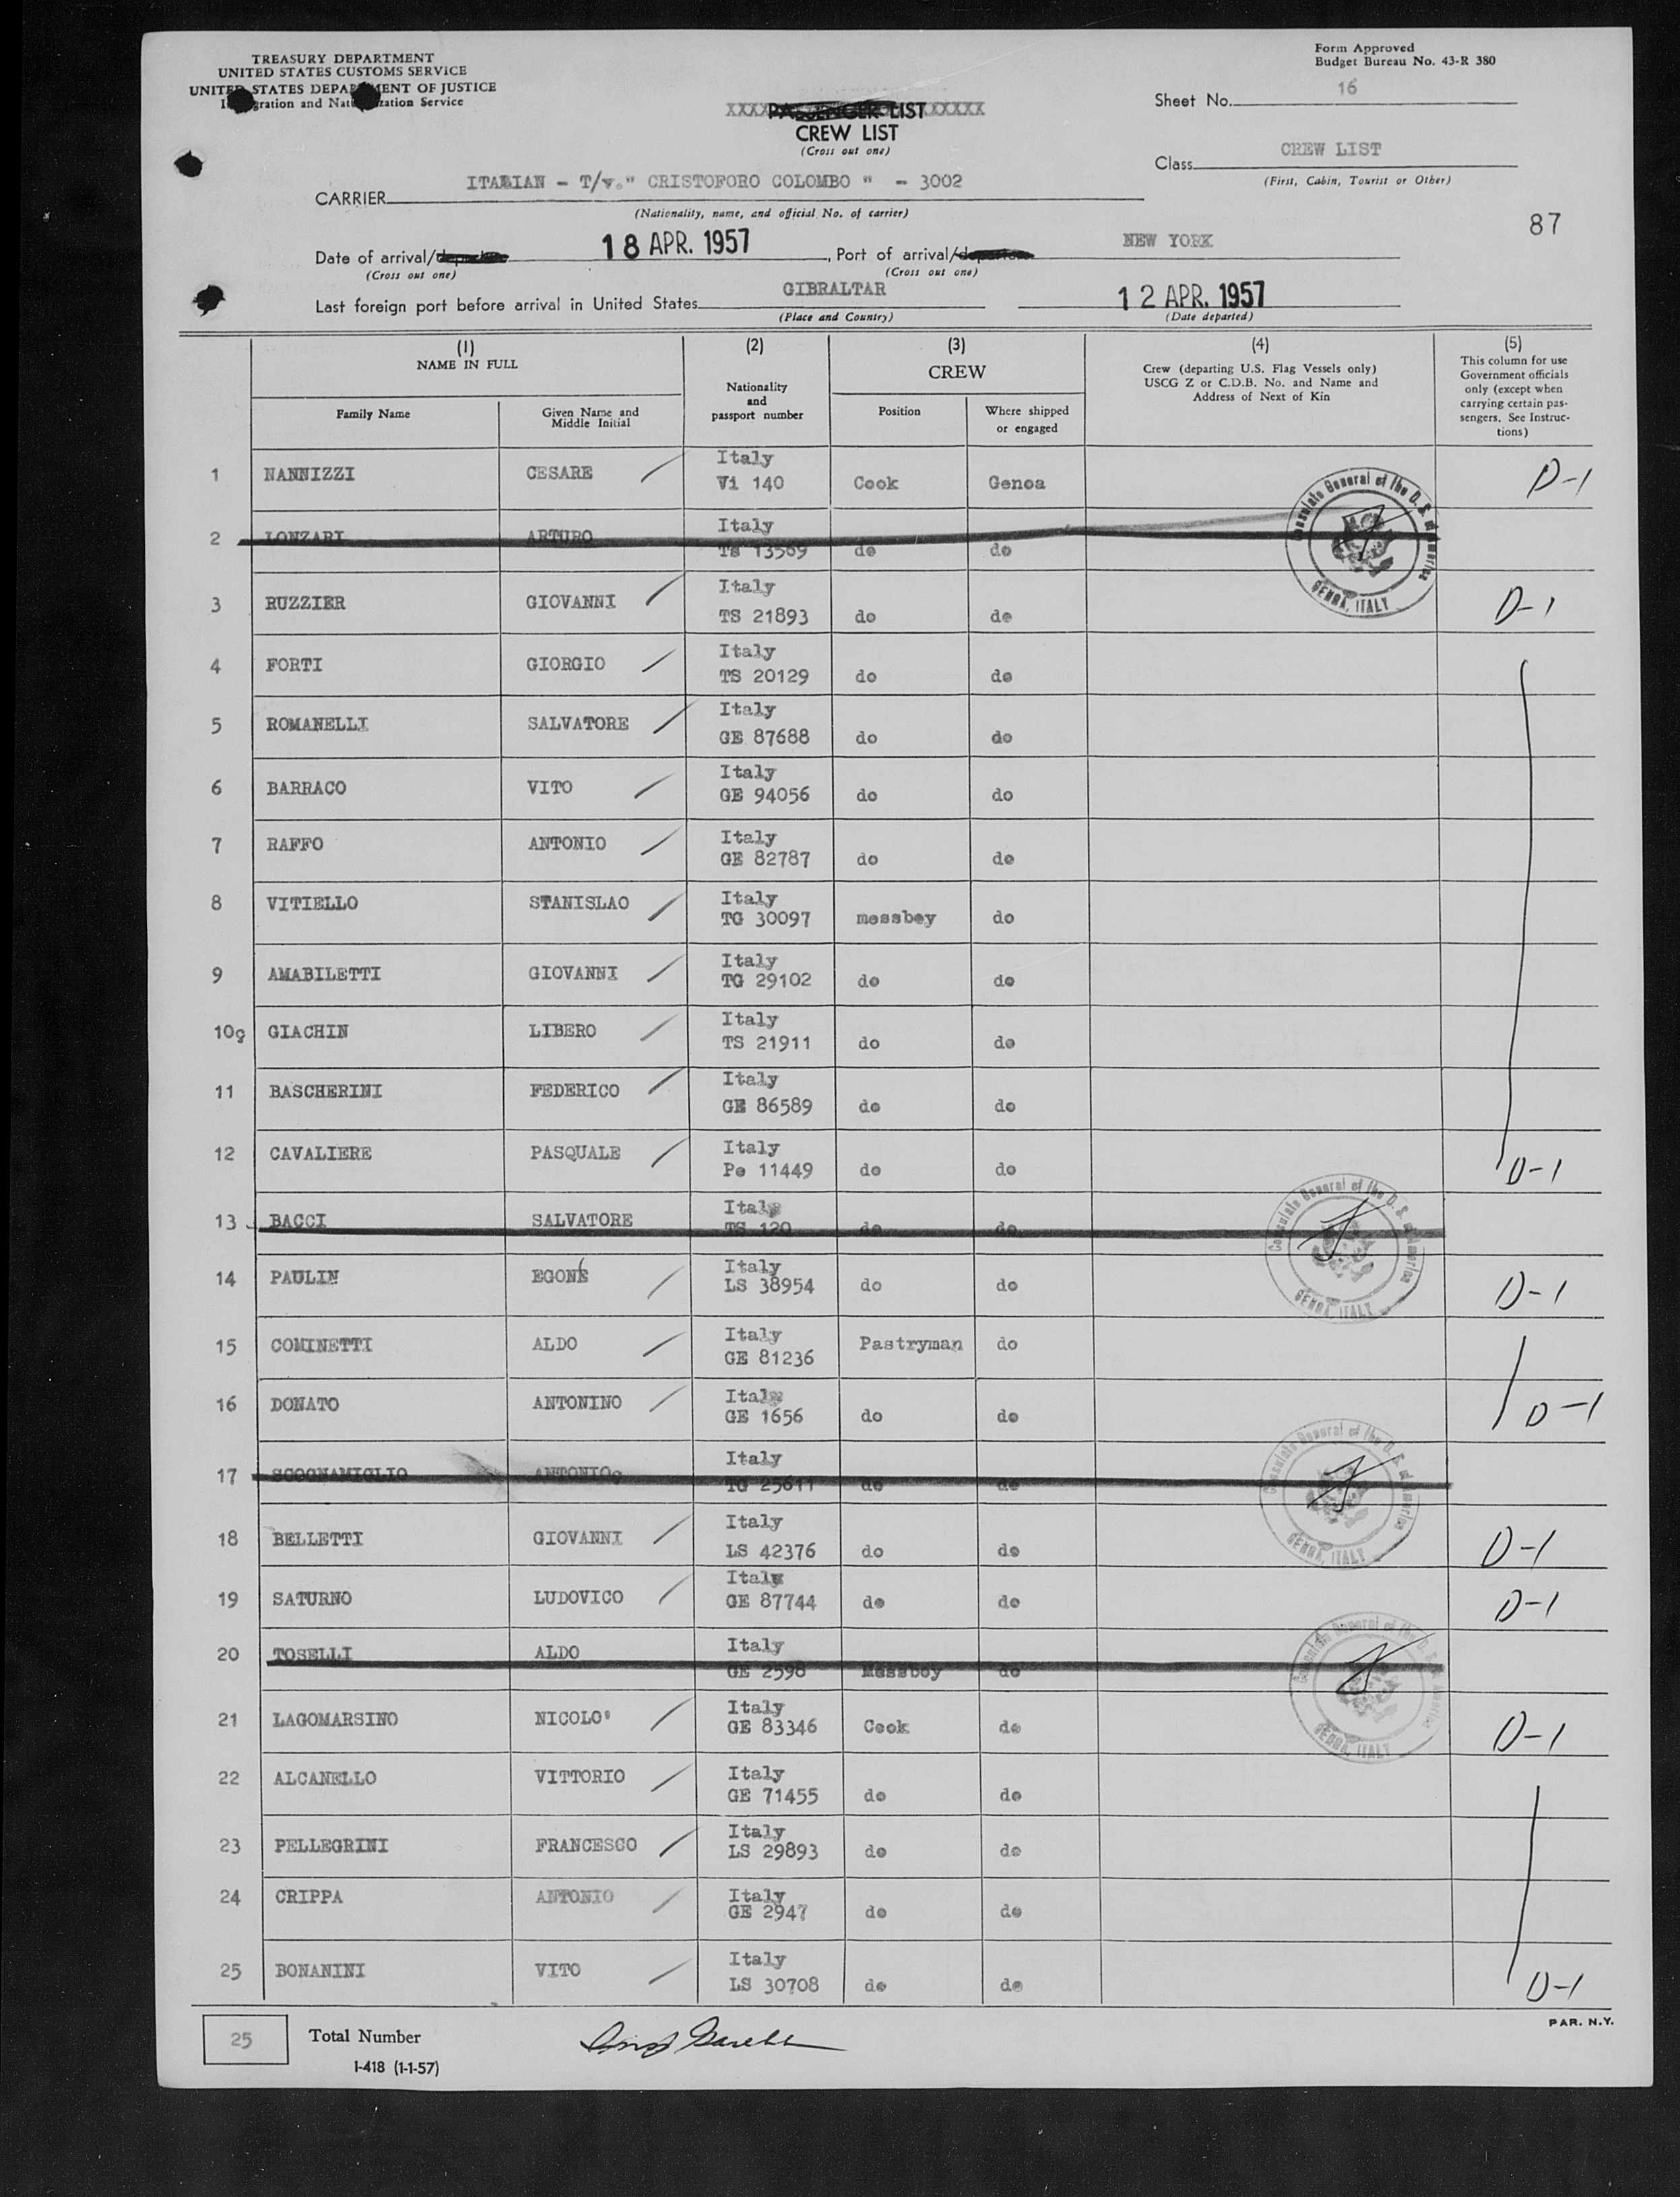 TREASURY DEPARTMENT
UNITED STATES CUSTOMS SERVICE
UNITED STATES DEPARTMENT OF JUSTICE
Immigration and Naturalization Service
Form Approved
Budget Bureau No. 43-R 380
Sheet No. 16
XXXX PASSENGER LIST XXXXXX
CREW LIST
(Cross out one)
Class CREW LIST
(First, Cabin, Tourist or Other)
CARRIER ITALIAN - T/v." CRISTOFORO COLOMBO " - 3002
(Nationality, name, and official No. of carrier)
87
Date of arrival/departure 18 APR. 1957, Port of arrival/departure NEW YORK
(Cross out one) (Cross out one)
Last foreign port before arrival in United States GIBRALTAR 12 APR. 1957
(Place and Country) (Date departed)
(1) (2) (3) (4) (5)
NAME IN FULL
Family Name
Given Name and
Middle Initial
Nationality
and
passport number
CREW
Position
Where shipped
or engaged
Crew (departing U.S. Flag Vessels only)
USCG Z or C.D.B. No. and Name and
Address of Next of Kin
This column for use
Government officials
only (except when
carrying certain pas-
sengers. See Instruc-
tions)
1 NANNIZZI CESARE Italy Vi 140 Cook Genoa D-1
2 LONZARI ARTURO Italy TS 13569 do do
3 RUZZIER GIOVANNI Italy TS 21893 do do D-1
4 FORTI GIORGIO Italy TS 20129 do do
5 ROMANELLI SALVATORE Italy GE 87688 do do
6 BARRACO VITO Italy GE 94056 do do
7 RAFFO ANTONIO Italy GE 82787 do do
8 VITIELLO STANISLAO Italy TG 30097 messboy do
9 AMABILETTI GIOVANNI Italy TG 29102 do do
10g GIACHIN LIBERO Italy TS 21911 do do
11 BASCHERINI FEDERICO Italy GE 86589 do do
12 CAVALIERE PASQUALE Italy Pe 11449 do do D-1
13 BACCI SALVATORE Italy TS 120 do do
14 PAULIN EGONE Italy LS 38954 do do D-1
15 COMINETTI ALDO Italy GE 81236 Pastryman do
16 DONATO ANTONINO Italy GE 1656 do do D-1
17 SCOGNAMIGLIO ANTONIOg Italy TG 25611 do do
18 BELLETTI GIOVANNI Italy LS 42376 do do D-1
19 SATURNO LUDOVICO Italy GE 87744 do do D-1
20 TOSELLI ALDO Italy GE 2598 Messboy do
21 LAGOMARSINO NICOLO' Italy GE 83346 Cook do D-1
22 ALCANELLO VITTORIO Italy GE 71455 do do
23 PELLEGRINI FRANCESCO Italy LS 29893 do do
24 CRIPPA ANTONIO Italy GE 2947 do do
25 BONANINI VITO Italy LS 30708 do do D-1
Consulate General of the U. S. of America
GENOA, ITALY
Consulate General of the U. S. of America
GENOA, ITALY
Consulate General of the U. S. of America
GENOA, ITALY
Consulate General of the U. S. of America
GENOA, ITALY
25 Total Number
I-418 (1-1-57)
PAR. N.Y.